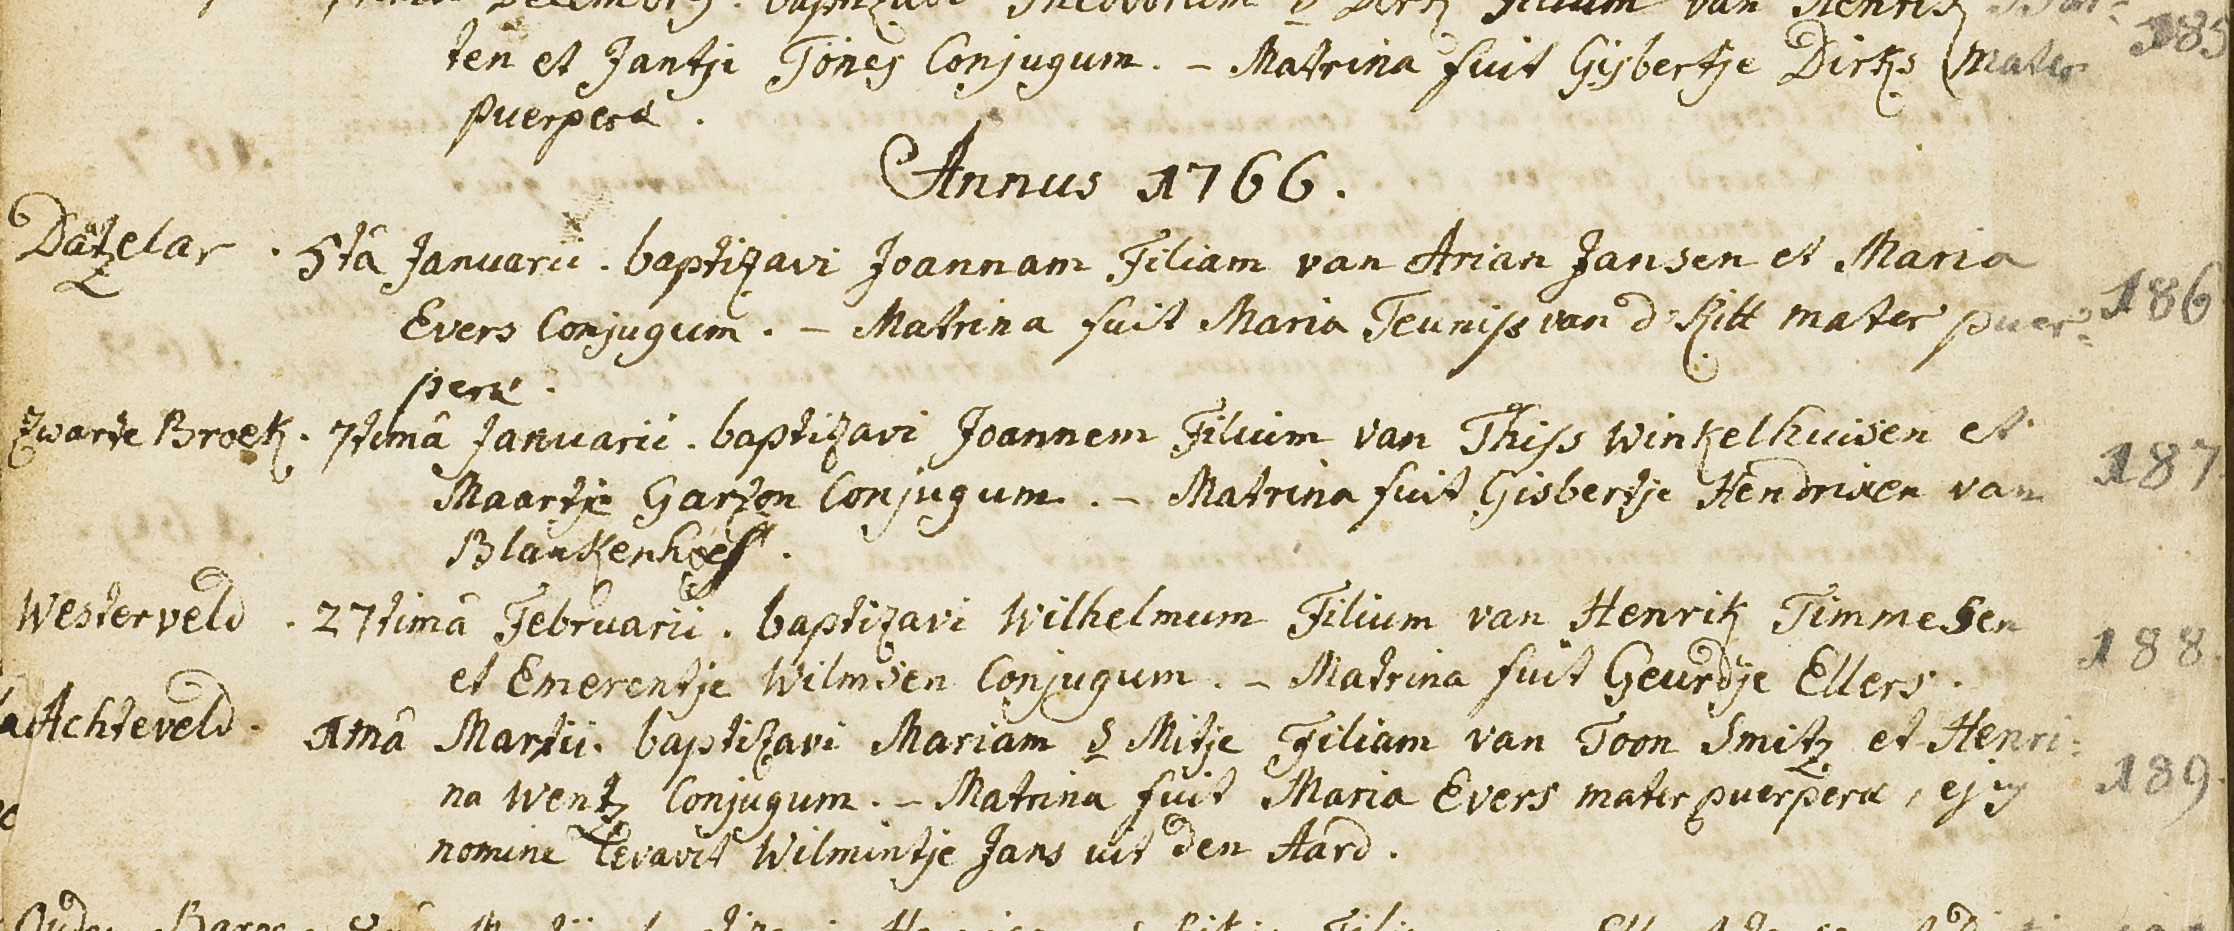 Decembris. baptizavi Theodorum s Derk Filium van Henrik
ten et Jantje Tönes Conjugum. – Matrina fuit Gisbertje Dirks (Mater 185
puerperæ.
Annus 1766.
Datzelar. 5tâ Januarii. baptizavi Joannam Filiam van Arian Jansen et Maria 186
Evers Conjugum. – Matrina fuit Maria Teuniss van d' Kitt mater puer=
peræ.
Zwarte Broek. 7timâ Januarii. baptizavi Joannem Filium van Thiss Winkelhuisen et 187
Maartje Garzon Conjugum. – Matrina fuit Gisbertje Hendrixen van
Blankenhoef.
Westerveld. 27timâ Februarii. baptizavi Wilhelmum Filium van Henrik Timmesen 188.
et Emerentje Wilmsen Conjugum. – Matrina fuit Geurdje Ellers.
Achteveld. 1mâ Martii. baptizavi Mariam s Mitje Filiam van Toon Smitz et Henri= 189.
na Wentz Conjugum. – Matrina fuit Maria Evers mater puerperæ, ejus
nomine levavit Wilmintje Jans uit den Aard.